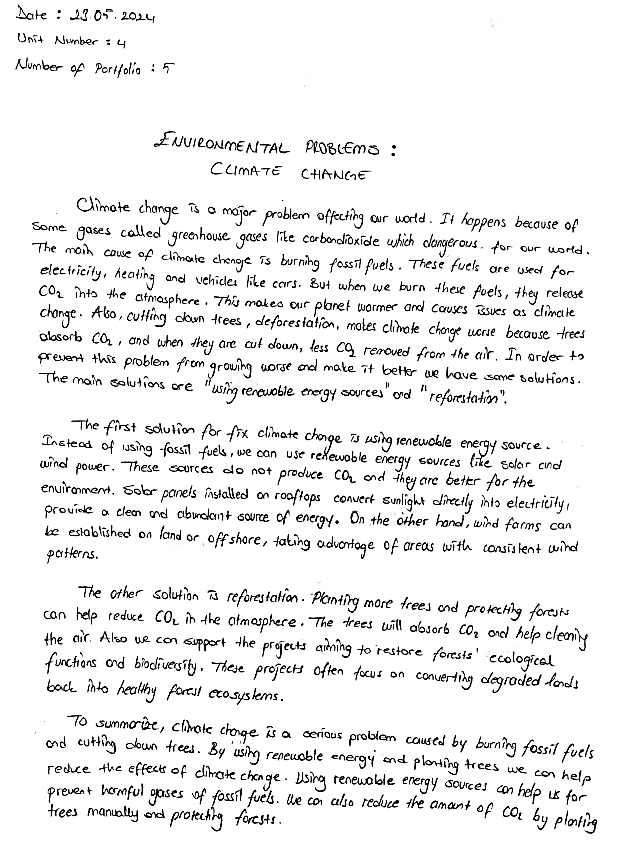 Date : 23.05.2024
Unit Number : 4
Number of Portfolio : 5
ENVIRONMENTAL PROBLEMS :
CLIMATE CHANGE
Climate change is a major problem affecting our world. It happens because of
some gases called greenhouse gases like carbondioxide which dangerous. for our world.
The main cause of climate change is burning fossil fuels. These fuels are used for
electricity, heating and vehicles like cars. But when we burn these fuels, they release
CO2 into the atmosphere. This makes our planet warmer and causes issues as climate
change. Also, cutting down trees, deforestation, makes climate change worse because trees
absorb CO2, and when they are cut down, less CO2 removed from the air. In order to
prevent this problem from growing worse and make it better we have some solutions.
The main solutions are "using renewable energy sources" and "reforestation".
The first solution for fix climate change is using renewable energy source.
Instead of using fossil fuels, we can use renewable energy sources like solar and
wind power. These sources do not produce CO2 and they are better for the
environment. Solar panels installed on rooftops convert sunlight directly into electricity,
provide a clean and abundant source of energy. On the other hand, wind farms can
be established on land or offshore, taking advantage of areas with consistent wind
patterns.
The other solution is reforestation. Planting more trees and protecting forests
can help reduce CO2 in the atmosphere. The trees will absorb CO2 and help cleaning
the air. Also we can support the projects aiming to restore forests' ecological
functions and biodiversity. These projects often focus on converting degraded lands
back into healthy forest ecosystems.
To summarize, climate change is a serious problem caused by burning fossil fuels
and cutting down trees. By using renewable energy and planting trees we can help
reduce the effects of climate change. Using renewable energy sources can help us for
prevent harmful gases of fossil fuels. We can also reduce the amount of CO2 by planting
trees manually and protecting forests.